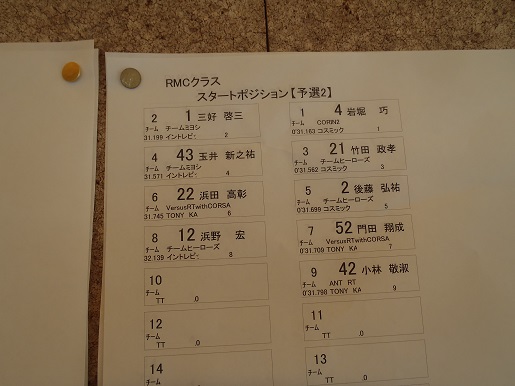 RMCクラス
スタートポジション【予選2】
2 1 三好 啓三
チーム チームミヨシ
31.199 イントレピ・ 2
1 4 岩堀 巧
チーム CORIN2
0'31.163 コスミック 1
4 43 玉井 新之祐
チーム チームミヨシ
31.571 イントレピ・ 4
3 21 竹田 政孝
チーム チームヒーローズ
0'31.562 コスミック 3
6 22 浜田 高彰
チーム VersusRTwithCORSA
31.745 TONY KA 6
5 2 後藤 弘祐
チーム チームヒーローズ
0'31.699 コスミック 5
8 12 浜野 宏
チーム チームヒーローズ
32.139 イントレピ・ 8
7 52 門田 翔成
チーム VersusRTwithCORSA
0'31.709 TONY KA 7
10
チーム
TT .0
9 42 小林 敬淑
チーム ANT RT
0'31.798 TONY KA 9
12
チーム
TT .0
11
チーム
TT .0
14
チーム
13
チーム